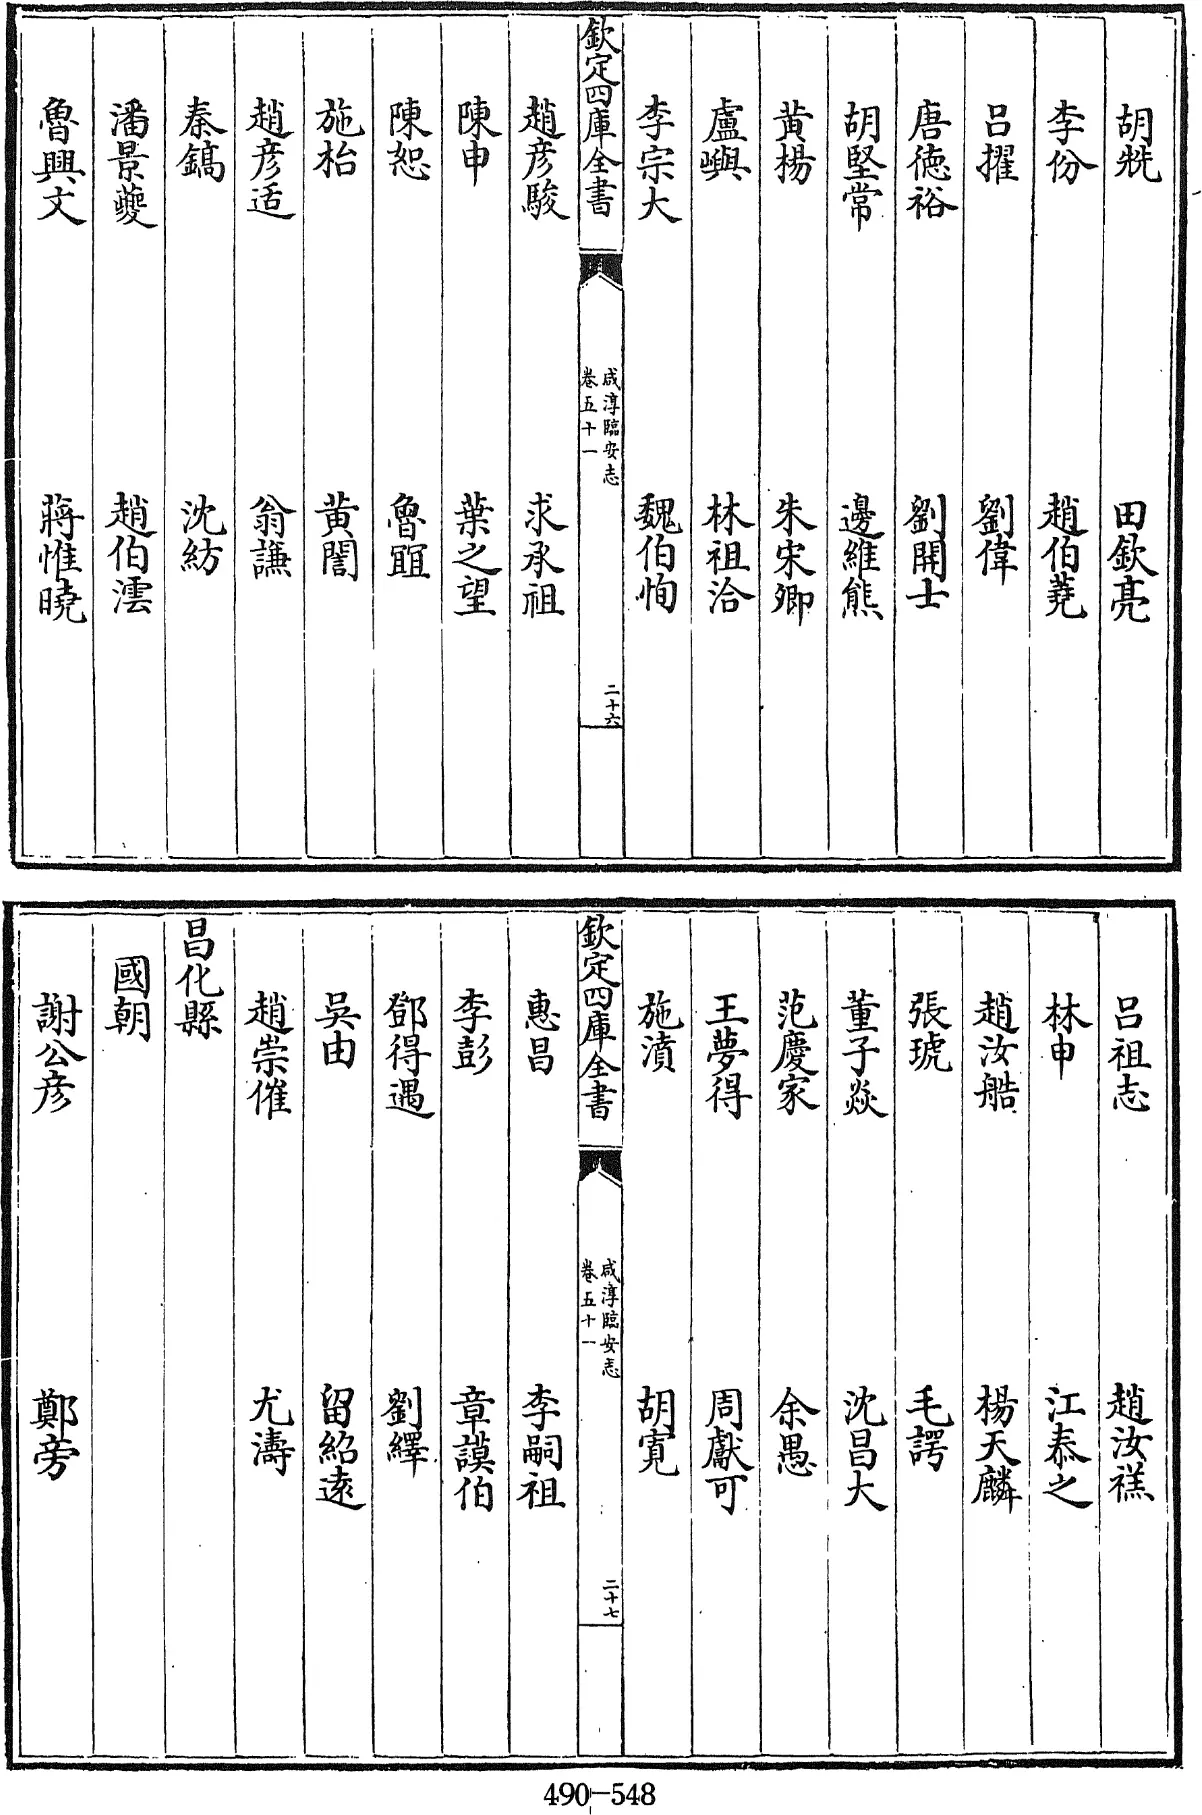 胡兟 田欽亮
李份 趙伯蕘
呂擢 劉偉
唐德裕 劉開士
胡堅常 邊維熊
黃楊 朱宋卿
盧嶼 林祖洽
李宗大 魏伯恂
欽定四庫全書
咸淳臨安志
卷五十一
二十六
趙彥駿 求承祖
陳申 葉之望
陳恕 魯
施枱 黃誾
趙彥适 翁謙
秦鎬 沈紡
潘景夔 趙伯澐
魯興文 蔣惟曉
呂祖志 趙汝禚
林申 江泰之
趙汝艁 楊天麟
張琥 毛諤
董子焱 沈昌大
范慶家 余愚
王夢得 周獻可
施濆 胡寬
欽定四庫全書
咸淳臨安志
卷五十一
二十七
惠昌 李嗣祖
李彭 章謨伯
鄧得遇 劉繹
吳由 留紹遠
趙崇催 尤濤
昌化縣
國朝
謝公彥 鄭旁
490-548